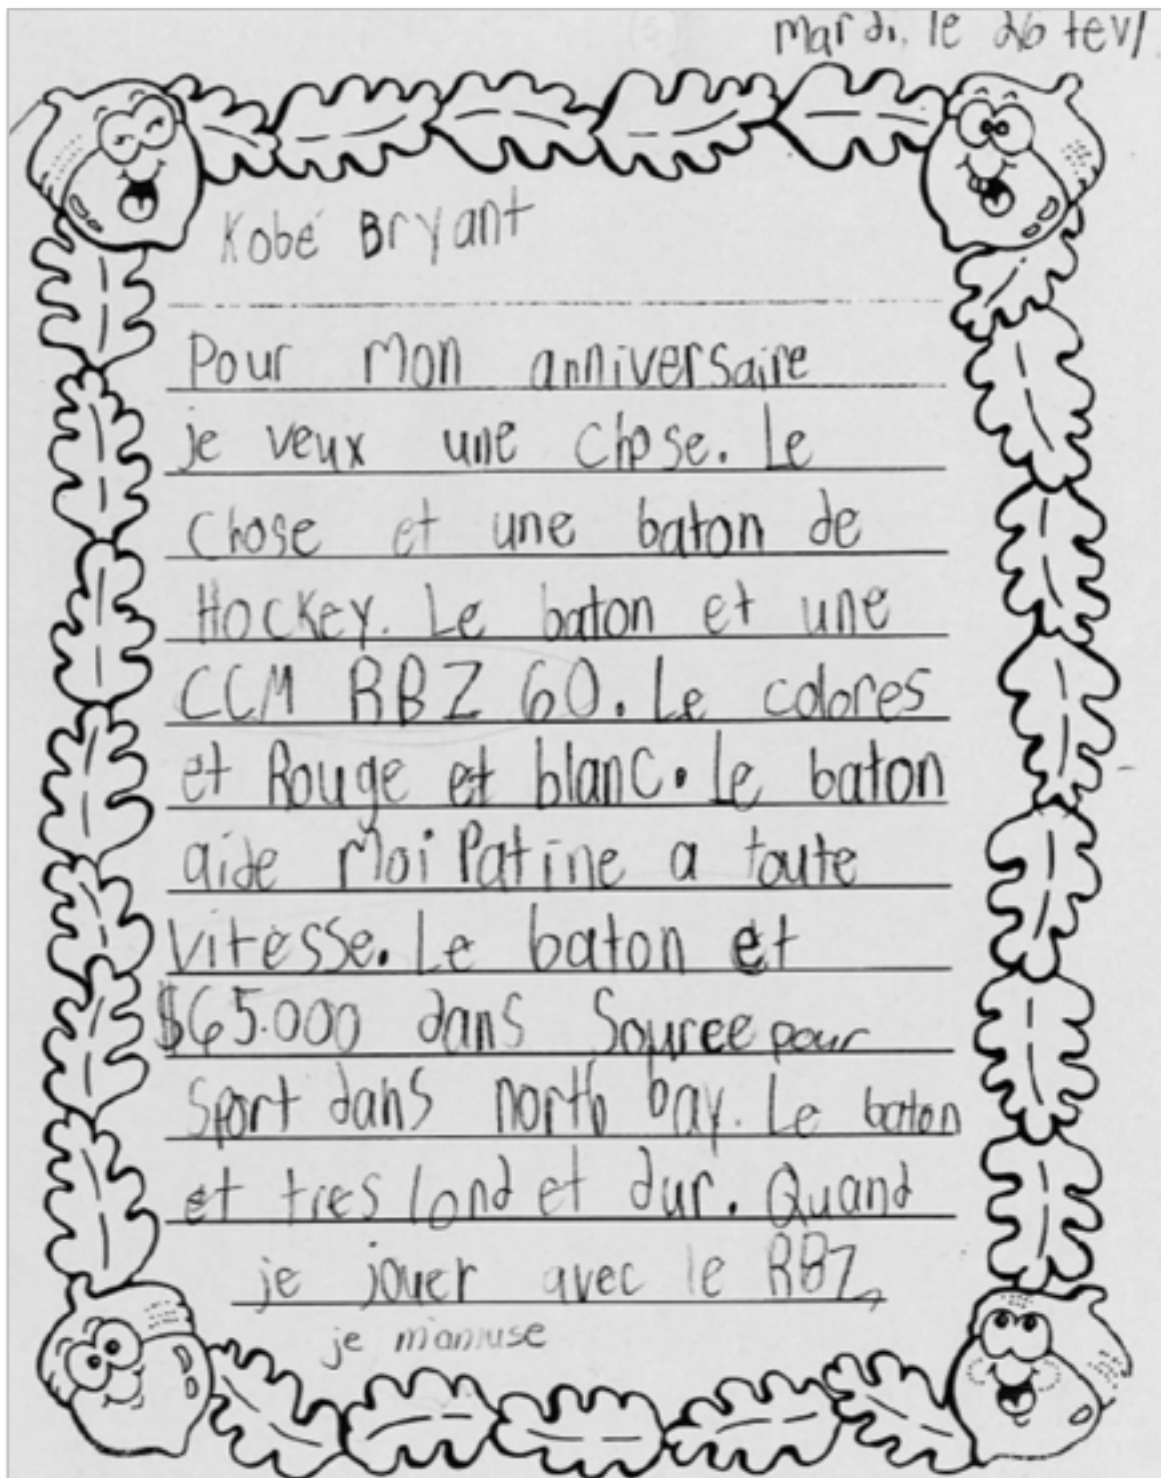 mardi, le 26 fev
Kobé Bryant
Pour mon anniversaire
je veux une chose. Le
chose et une baton de
Hockey. Le baton et une
CCM RBZ 60. Le colores
et Rouge et blanc. Le baton
aide Moi Patine a toute
vitesse. Le baton et
$65.000 dans Souree pour
Sport dans north bay. Le baton
et tres lond et dur. Quand
je jouer avec le RBZ,
je m'amuse